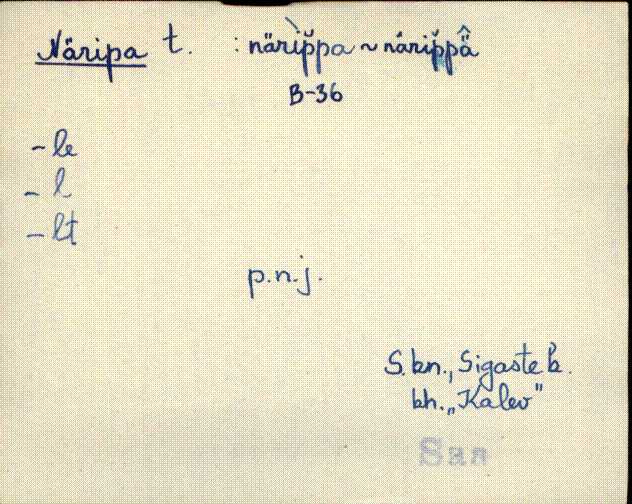 Näripa t. : närìp̆pa ~ närip̆pä̂
B-36
-le
-l
-lt
p.n.j.
S. kn., Sigaste k.
kh. „Kalev"
Saa